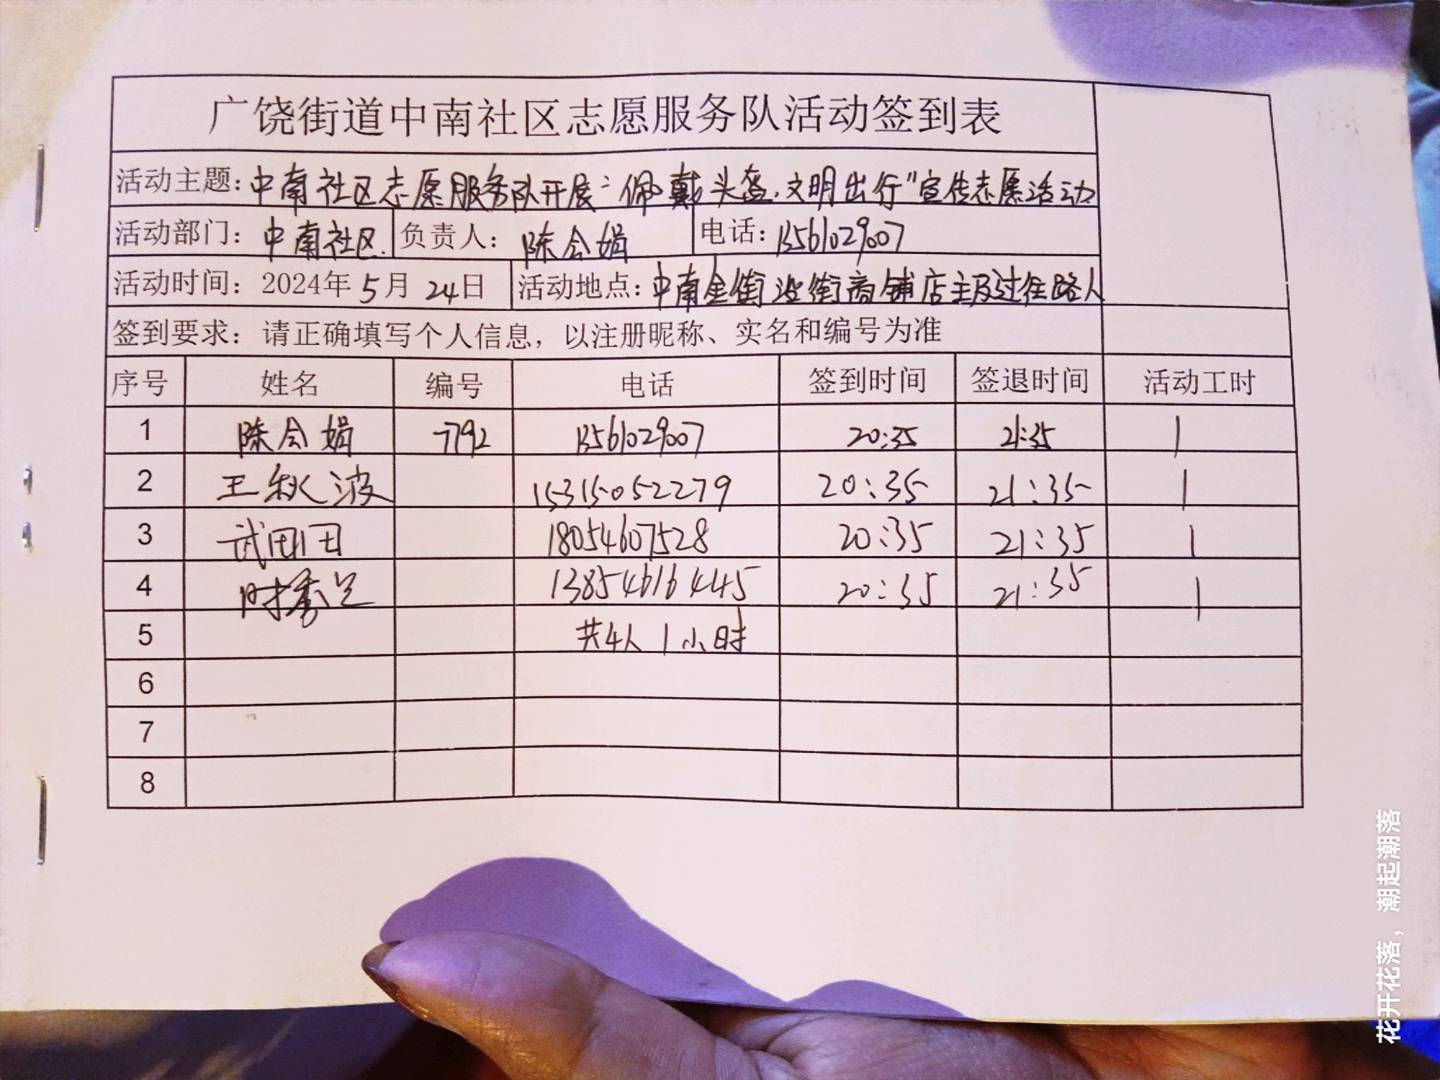 广饶街道中南社区志愿服务队活动签到表
活动主题：中南社区志愿服务队开展“佩戴头盔.文明出行”宣传志愿活动
活动部门：中南社区. 负责人：陈会娟 电话：13561029007
活动时间：2024年5月24日 活动地点：中南金街沿街商铺店主及过往路人
签到要求：请正确填写个人信息，以注册昵称、实名和编号为准
序号 姓名 编号 电话 签到时间 签退时间 活动工时
1 陈会娟 7792 13561029007 20:35 21:35 1
2 王秋波 15315052279 20:35 21:35 1
3 武田田 18054607528 20:35 21:35 1
4 时秀兰 13854616445 20:35 21:35 1
5 共4人 1小时
6
7
8
花开花落，潮起潮落